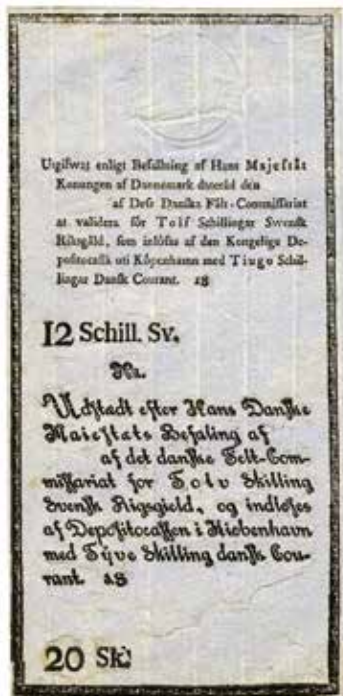 Utgifwas enligt Befallning af Hans Majestät
Konungen af Dannemark dateral den
af Dess Danska Fält-Commissariat
at validera för Tolf Schillingar Swensk
Riksgäld, som inlösas af den Kongelige De-
positocassa uti Köpenhamn med Tiugo Schil-
lingar Dansk Courant. 18
12 Schill. Sv.
No.
Udstædt efter Hans Danske
Maiestæts Befaling af
af det danske Felt-Com-
missariat for Tolv Skilling
Svensk Rigsgield, og indløses
af Depositocassen i Kiøbenhavn
med Tyve Skilling dansk Cou-
rant. 18
20 Sk: